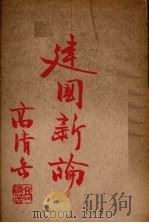 建国新論
高清岳